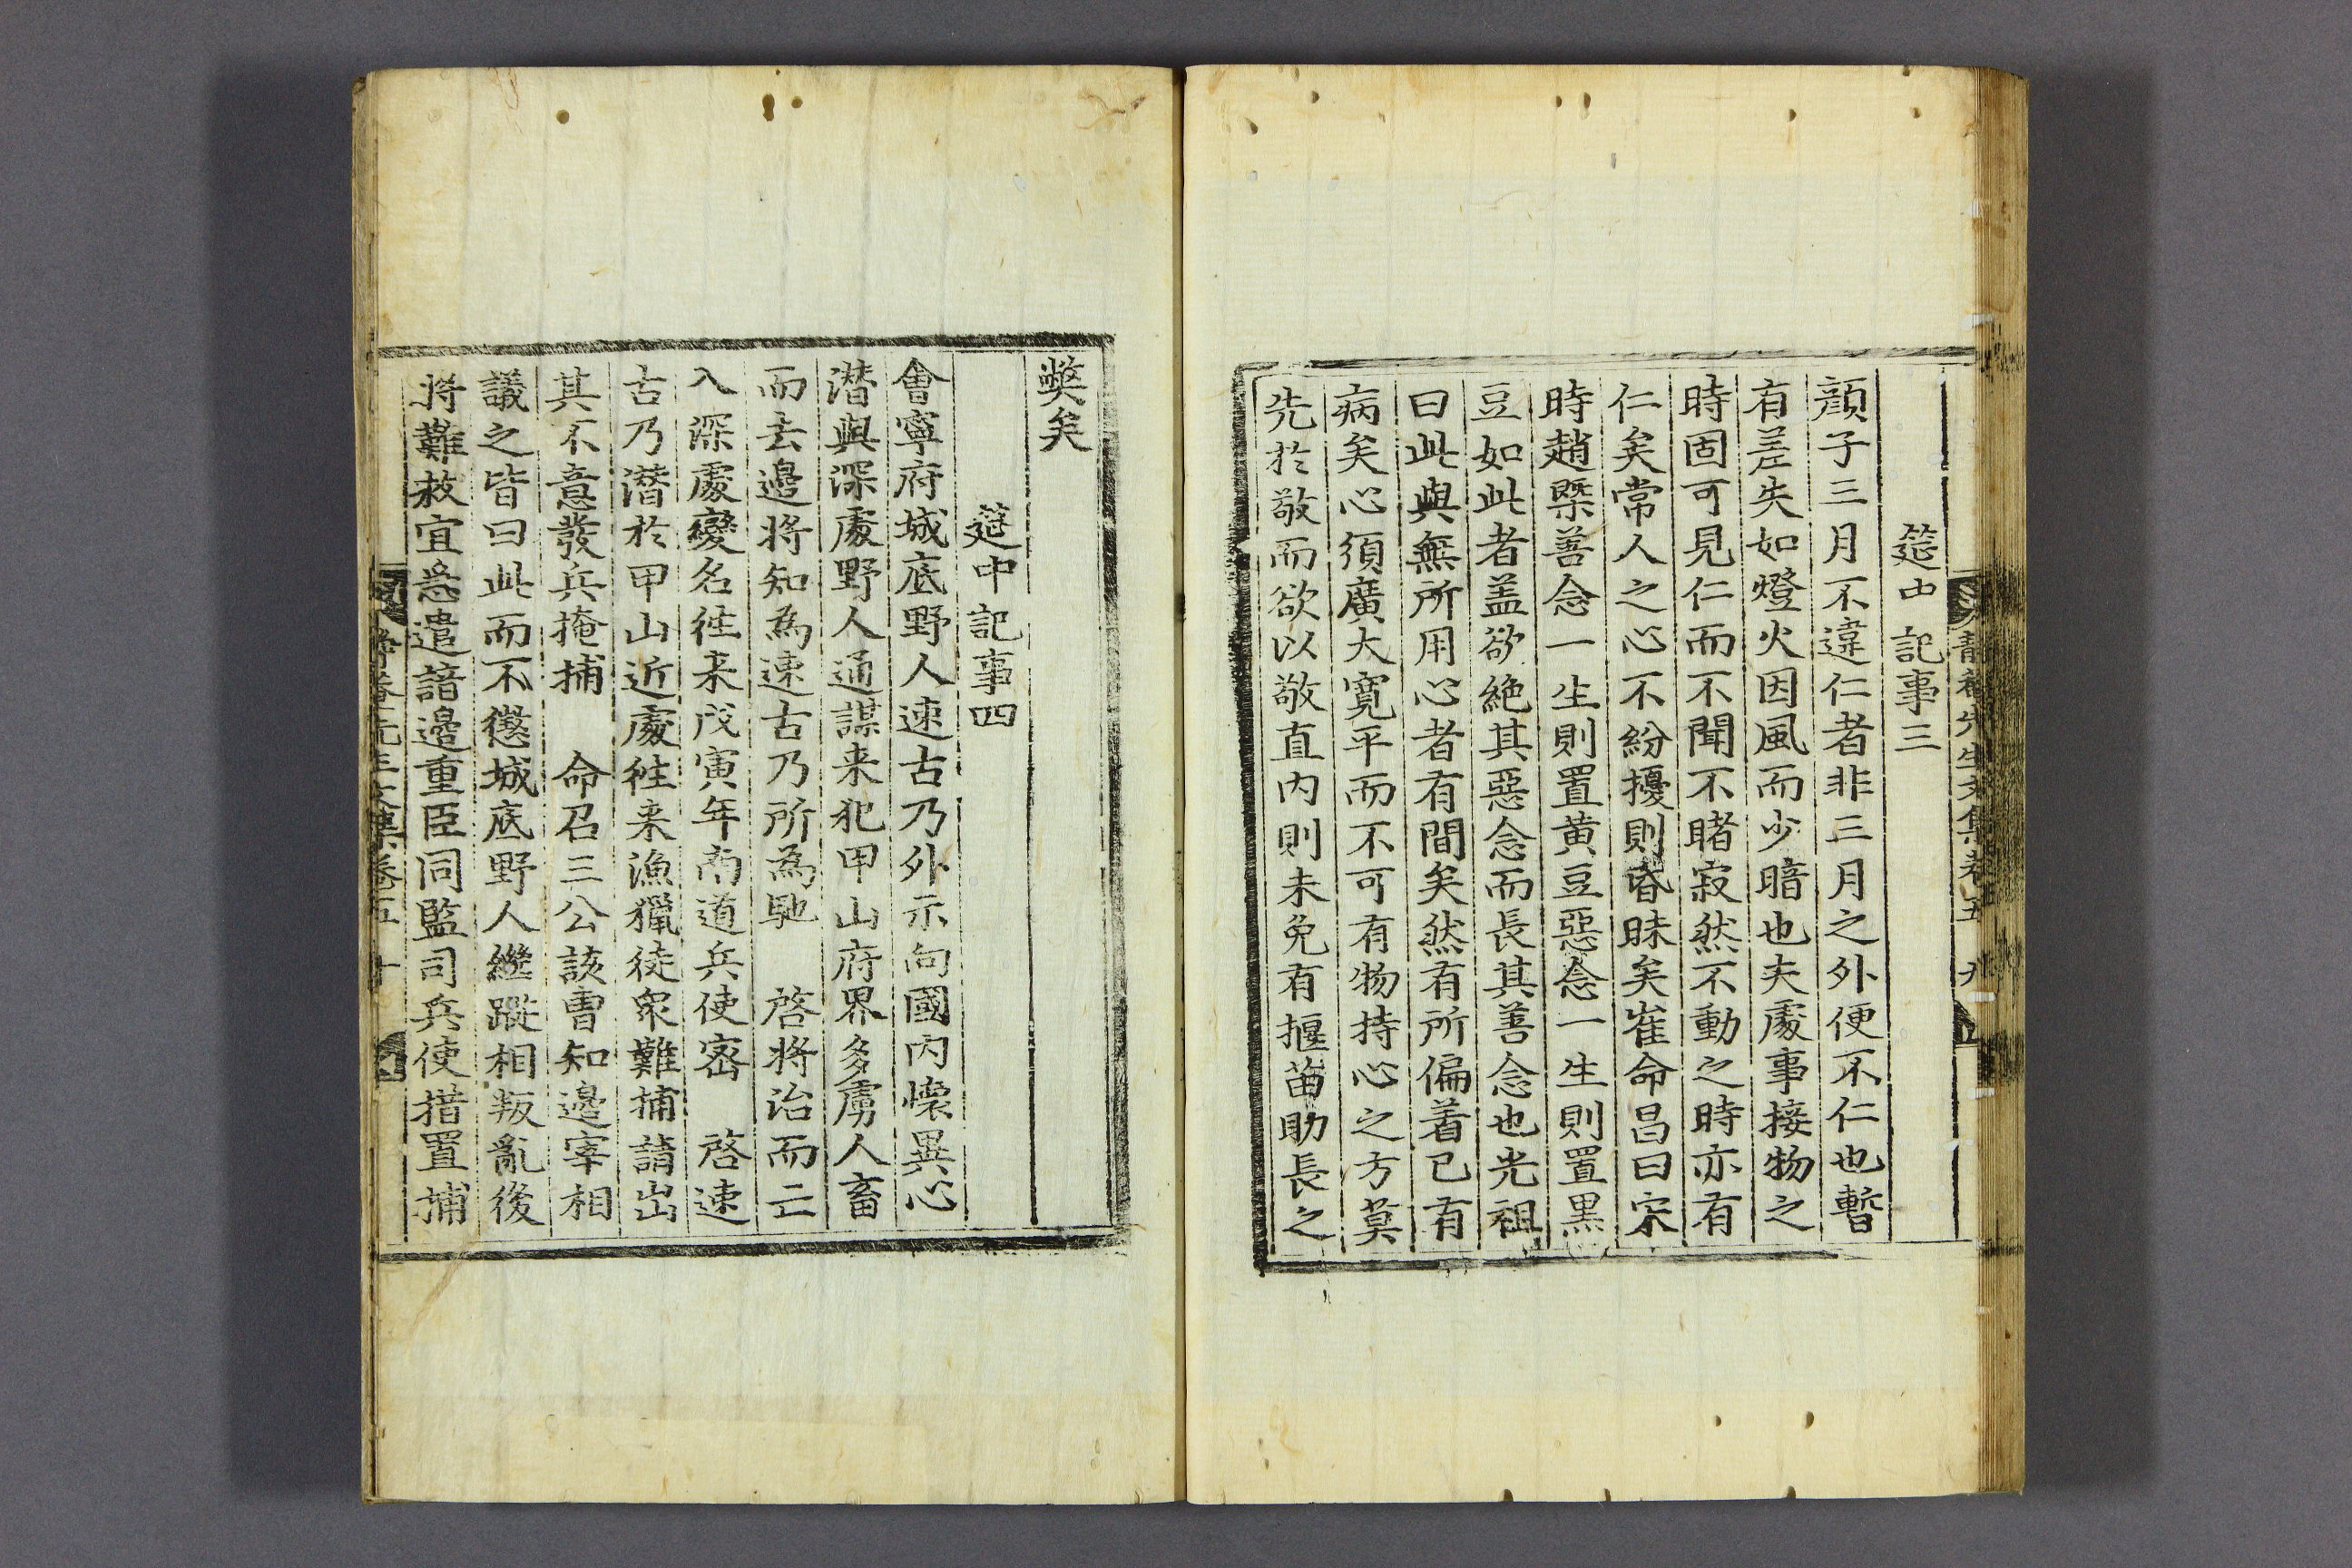 靜菴先生文集卷五 九
筵中記事三
顔子三月不違仁者非三月之外便不仁也暫
有差失如燈火因風而少暗也夫處事接物之
時固可見仁而不聞不睹寂然不動之時亦有
仁矣常人之心不紛擾則昏昧矣崔命昌曰宋
時趙槩善念一生則置黄豆惡念一生則置黒
豆如此者盖欲絶其惡念而長其善念也光祖
曰此與無所用心者有間矣然有所偏着已有
病矣心須廣大寛平而不可有物持心之方莫
先於敬而欲以敬直内則未免有揠苗助長之
獘矣
筵中記事四
㑹寧府城底野人速古乃外示向國内懐異心
潜與深處野人通謀来犯甲山府界多虜人畜
而去邉將知為速古乃所為馳 啓將治而亡
入深處變名徃来戊寅年南道兵使宻 啓速
古乃潜於甲山近處徃来漁獵徒衆難捕請出
其不意發兵掩捕 命召三公該曺知邉宰相
議之皆曰此而不懲城底野人繼蹤相叛亂後
將難救宜急遣諳邉重臣同監司兵使措置捕
靜菴先生文集卷五 十